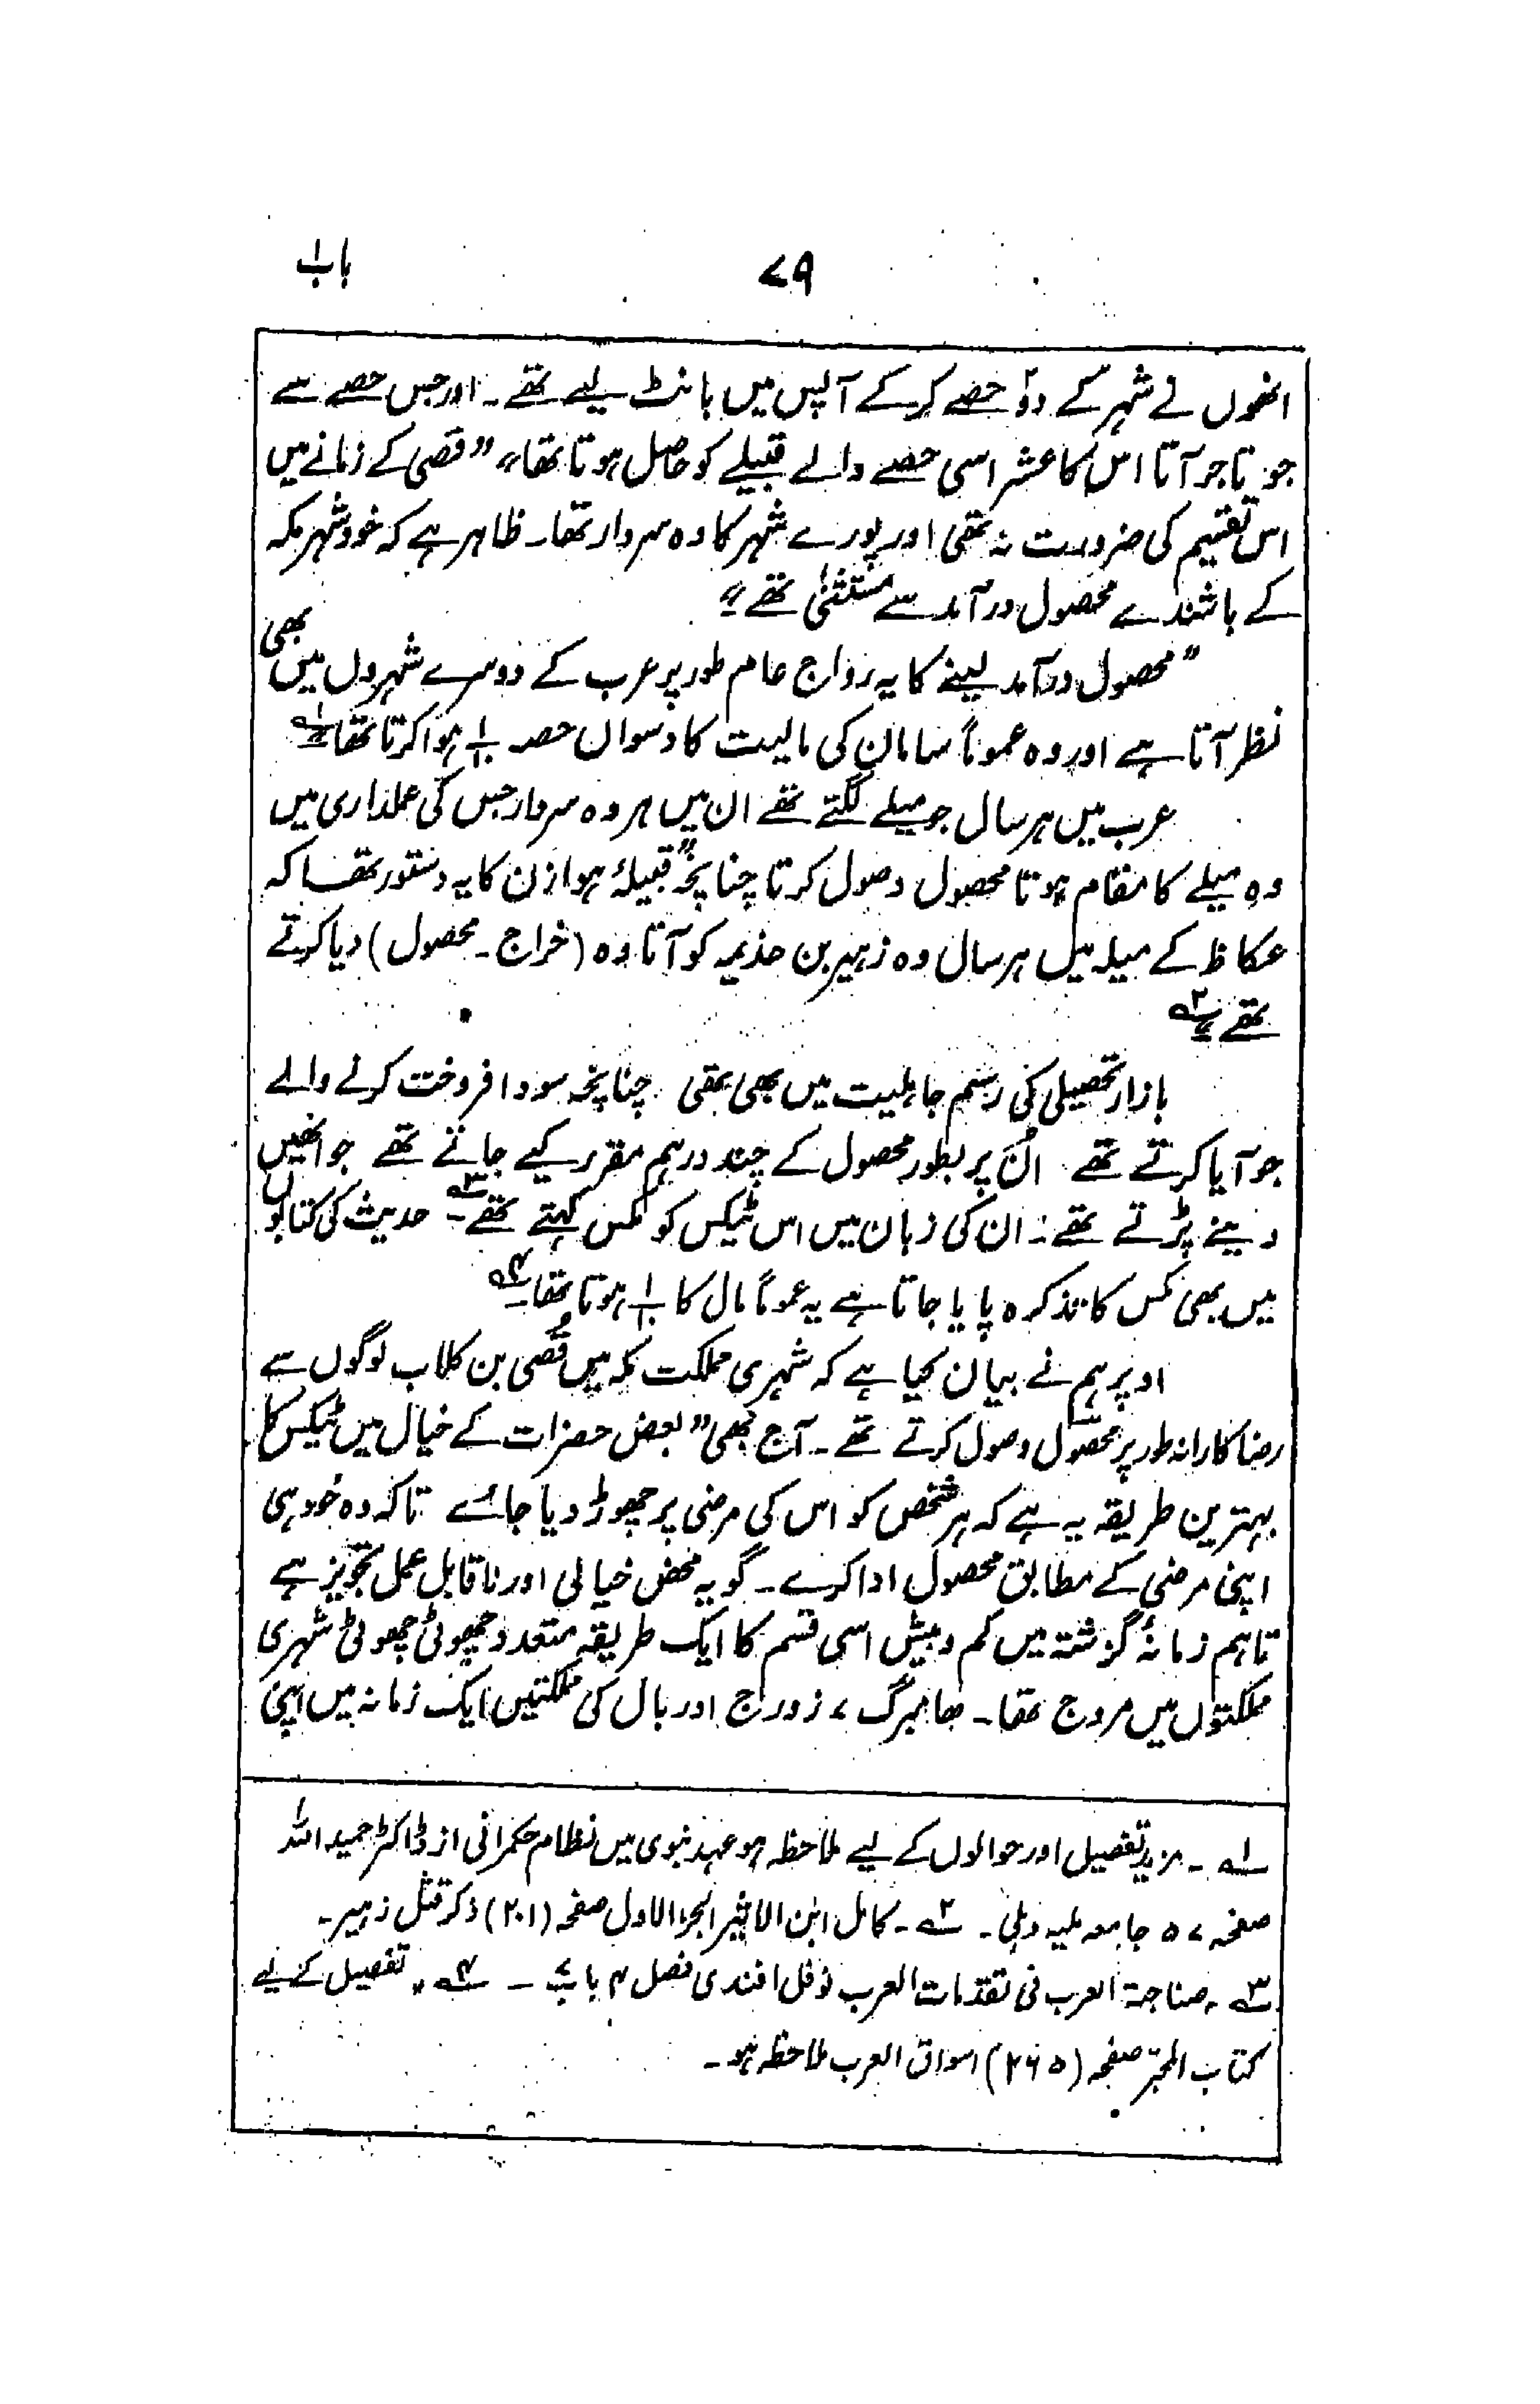 باب ۱
۷۹
انھوں نے شہر کے دو حصے کر کے آپس میں بانٹ لیے تھے۔ اور جس حصے سے
جو تاجر آتا اس کا عشر اسی حصے والے قبیلے کو حاصل ہوتا تھا" "قصی کے زمانے میں
اس تقسیم کی ضرورت نہ تھی اور پورے شہر کا وہ سردار تھا۔ ظاہر ہے کہ خود شہر مکہ
کے باشندے محصول درآمد سے مستثنیٰ تھے"
"محصول درآمد لینے کا یہ رواج عام طور پر عرب کے دوسرے شہروں میں بھی
نظر آتا ہے اور وہ عموماً سامان کی مالیت کا دسواں حصہ ۱/۱۰ ہوا کرتا تھا" ۱ے
عرب میں ہر سال جو میلے لگتے تھے ان میں ہر وہ سردار جس کی عملداری میں
وہ میلے کا مقام ہوتا محصول وصول کرتا چنانچہ "قبیلۂ ہوازن کا یہ دستور تھا کہ
عکاظ کے میلہ میں ہر سال وہ زہیر بن جذیمہ کو آتاوہ (خراج۔ محصول) دیا کرتے
تھے" ۲ے
بازار تحصیلی کی رسم جاہلیت میں بھی تھی۔ چنانچہ سودا فروخت کرنے والے
جو آیا کرتے تھے اُن پر بطور محصول کے چند درہم مقرر کیے جاتے تھے جو انھیں
دینے پڑتے تھے۔ ان کی زبان میں اس ٹیکس کو مکس کہتے تھے ۳ے۔ حدیث کی کتابوں
میں بھی مکس کا تذکرہ پایا جاتا ہے یہ عموماً مال کا ۱/۱۰ ہوتا تھا۔ ۴ے
اوپر ہم نے بیان کیا ہے کہ شہری مملکت مکہ میں قُصی بن کلاب لوگوں سے
رضا کارانہ طور پر محصول وصول کرتے تھے۔ آج بھی "بعض حضرات کے خیال میں ٹیکس کا
بہترین طریقہ یہ ہے کہ ہر شخص کو اس کی مرضی پر چھوڑ دیا جائے تاکہ وہ خود ہی
اپنی مرضی کے مطابق محصول ادا کرے۔ گو یہ محض خیالی اور ناقابل عمل تجویز ہے
تاہم زمانۂ گزشتہ میں کم و بیش اسی قسم کا ایک طریقہ متعدد چھوٹی چھوٹی شہری
مملکتوں میں مروج تھا۔ ھامبرگ، زورج اور بال کی مملکتیں ایک زمانہ میں اپنی
۱ے۔ مزید تفصیل اور حوالوں کے لیے ملاحظہ ہو عہد نبوی میں نظام حکمرانی از ڈاکٹر حمید اللہ
صفحہ ۵۷ جامعہ ملیہ دہلی۔ ۲ے۔ کامل ابن الاثیر الجزء الاول صفحہ (۲۰۱) ذکر قتل زہیر۔
۳ے۔ صناجۃ العرب فی تقدمات العرب نوفل افندی فصل ۴ باب ۷۔ ۴ے۔ تفصیل کے لیے
کتاب المحبر صفحہ (۲۶۵) اسواق العرب ملاحظہ ہو۔